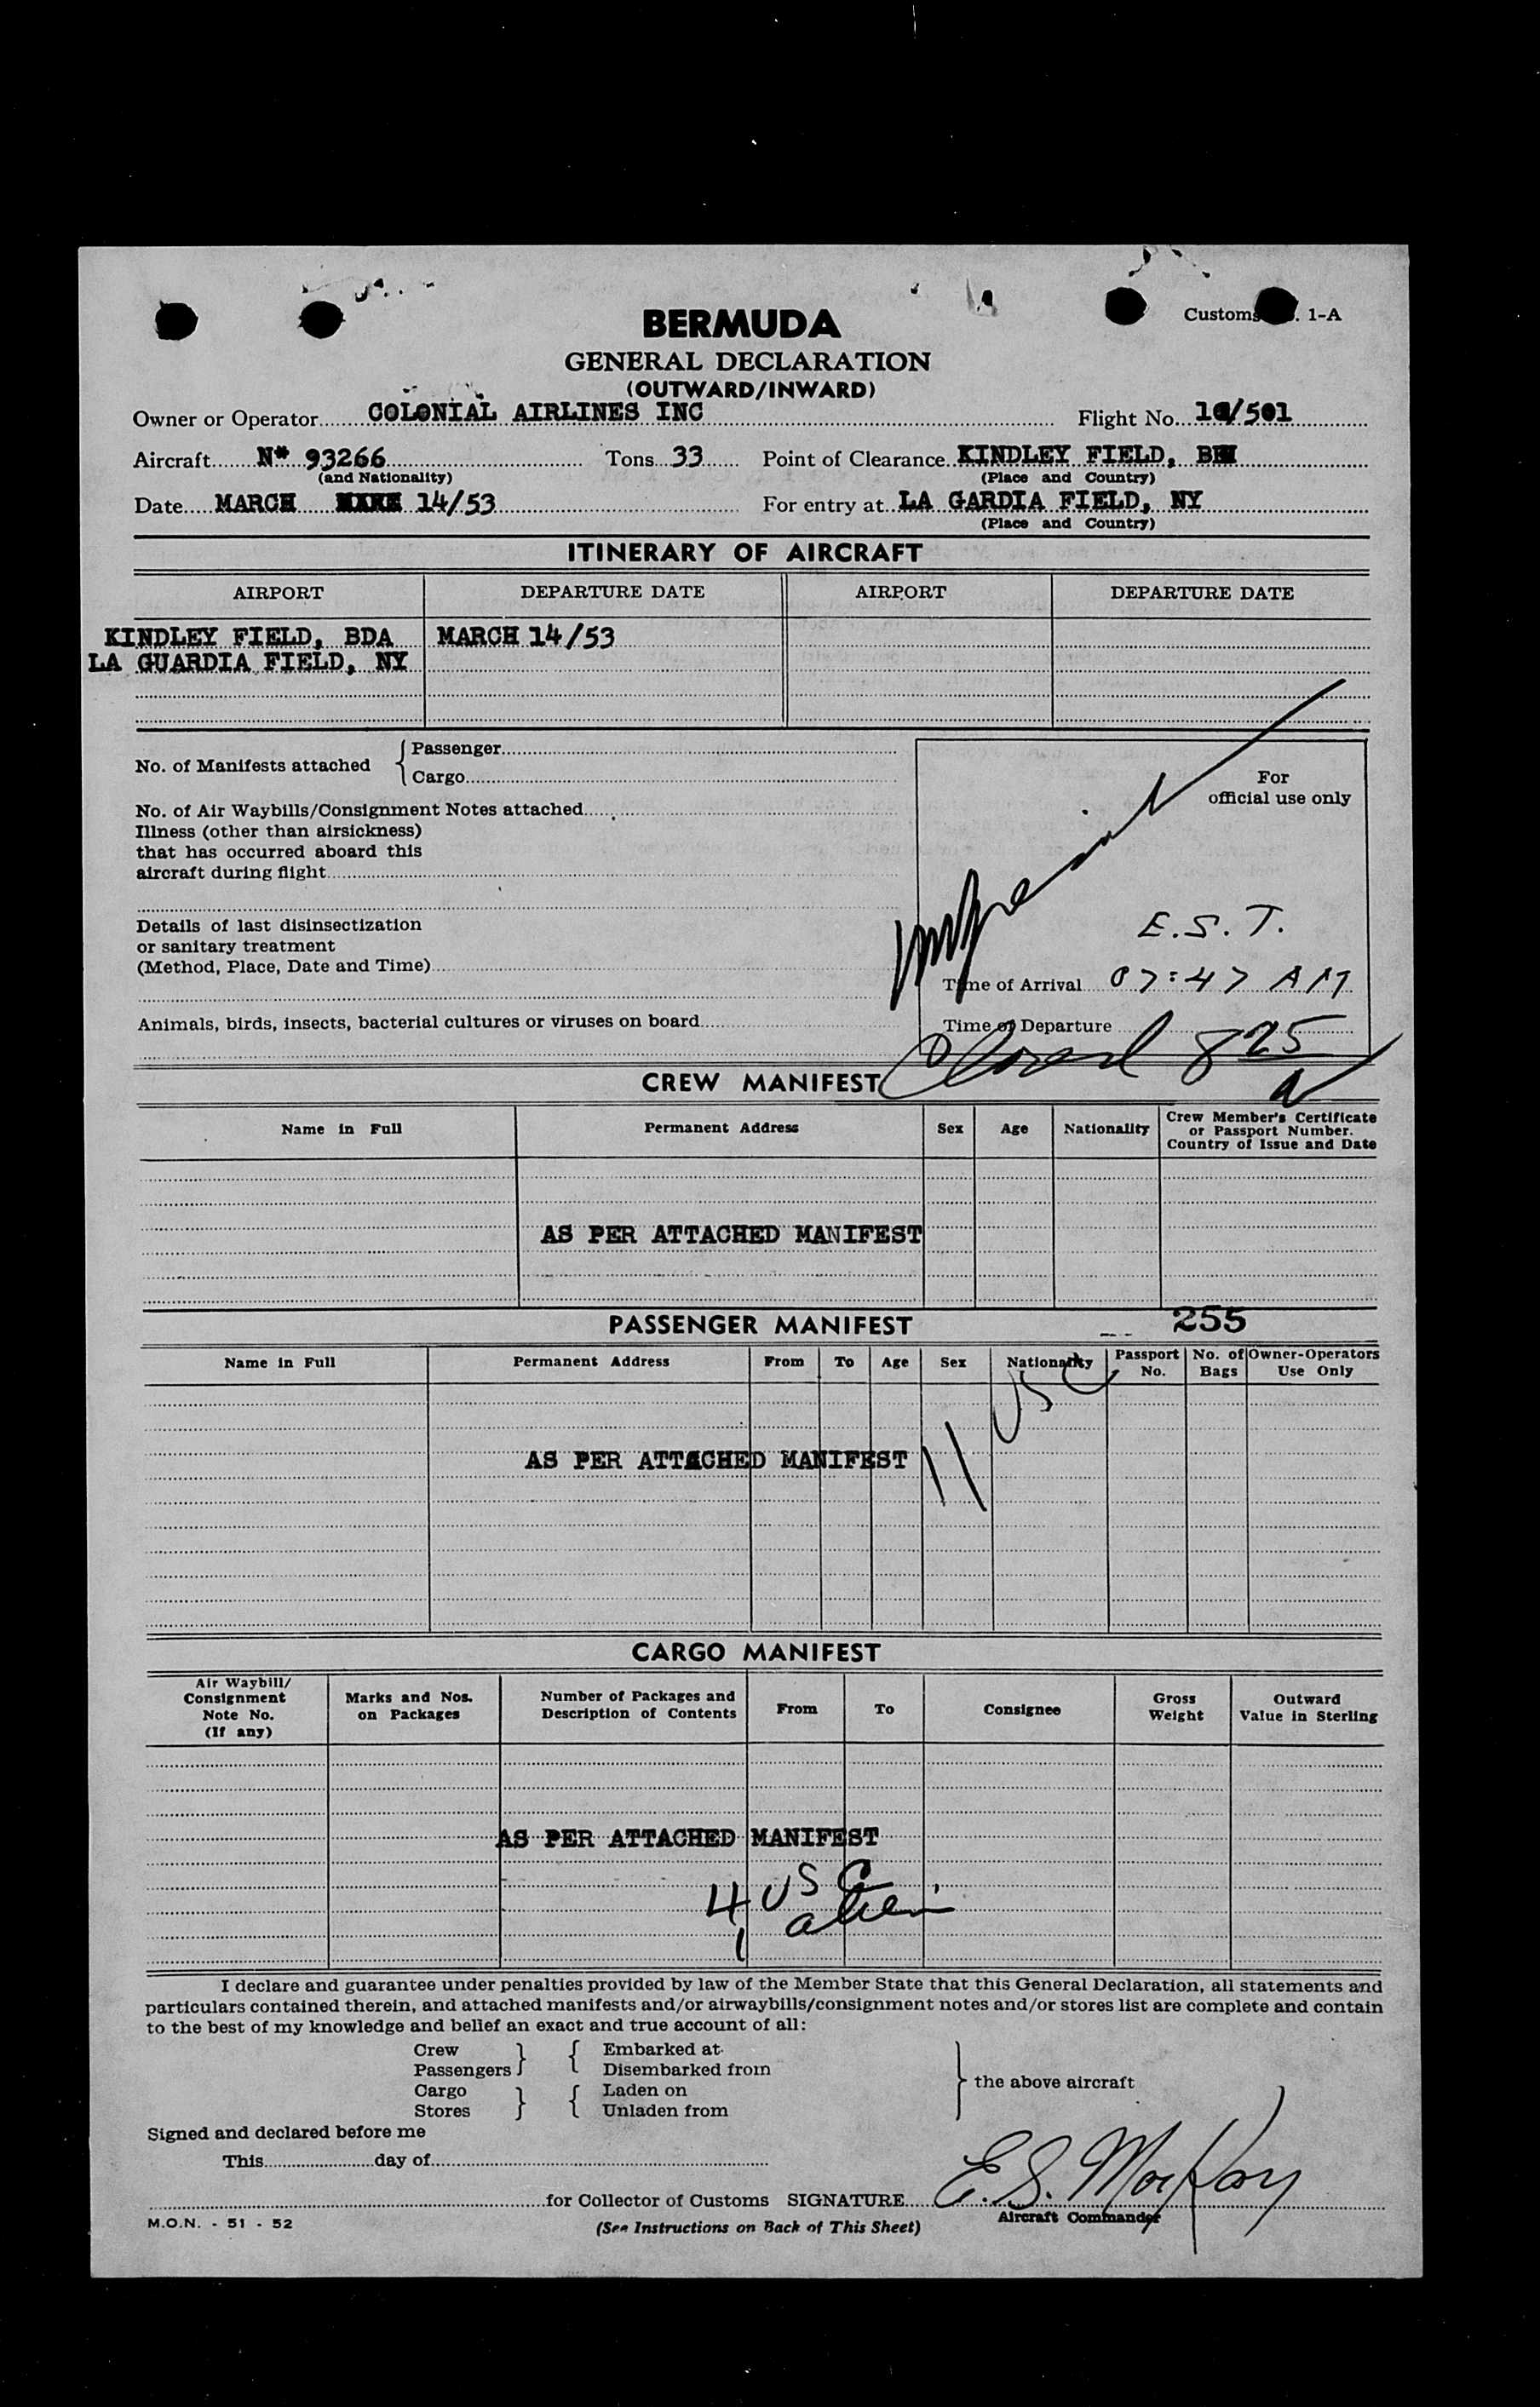 Customs . 1-A
BERMUDA
GENERAL DECLARATION
(OUTWARD/INWARD)
Owner or Operator COLONIAL AIRLINES INC Flight No. /501
Aircraft N* 93266 Tons 33 Point of Clearance KINDLEY FIELD,
(and Nationality) (Place and Country)
Date MARCH 14/53 For entry at LA GARDIA FIELD, NY
(Place and Country)
ITINERARY OF AIRCRAFT
AIRPORT DEPARTURE DATE AIRPORT DEPARTURE DATE
KINDLEY FIELD, BDA MARCH 14/53
LA GUARDIA FIELD, NY
No. of Manifests attached { Passenger
Cargo
For
official use only
No. of Air Waybills/Consignment Notes attached
Illness (other than airsickness)
that has occurred aboard this
aircraft during flight
Details of last disinsectization
or sanitary treatment
(Method, Place, Date and Time)
E.S.T.
Time of Arrival 07:47 AM
Animals, birds, insects, bacterial cultures or viruses on board
Time of Departure
Closed 8 25
CREW MANIFEST
Name in Full Permanent Address Sex Age Nationality Crew Member's Certificate
or Passport Number.
Country of Issue and Date
AS PER ATTACHED MANIFEST
PASSENGER MANIFEST 255
Name in Full Permanent Address From To Age Sex Nationality Passport No. No. of Bags Owner-Operators Use Only
11 USC
AS PER ATTACHED MANIFEST
CARGO MANIFEST
Air Waybill/
Consignment
Note No.
(If any)
Marks and Nos.
on Packages
Number of Packages and
Description of Contents
From To Consignee
Gross
Weight
Outward
Value in Sterling
AS PER ATTACHED MANIFEST
4 USC
1 alien
I declare and guarantee under penalties provided by law of the Member State that this General Declaration, all statements and
particulars contained therein, and attached manifests and/or airwaybills/consignment notes and/or stores list are complete and contain
to the best of my knowledge and belief an exact and true account of all:
Crew } { Embarked at
Passengers Disembarked from
Cargo } { Laden on
Stores Unladen from
} the above aircraft
Signed and declared before me
This day of
for Collector of Customs SIGNATURE E. S. MacKay
Aircraft Commander
M.O.N. - 51 - 52
(See Instructions on Back of This Sheet)